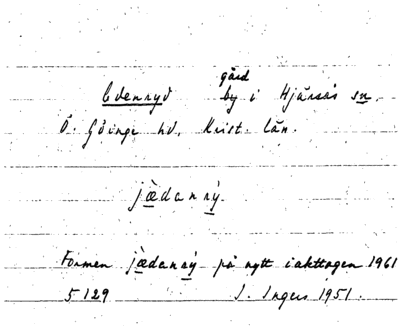 gård
Edenryd by i Hjärsås sn.
Ö. Göinge hd, Krist. län.
jædanrý.
Formen jædanrý på nytt iakttagen 1961
5129 I. Ingers 1951.